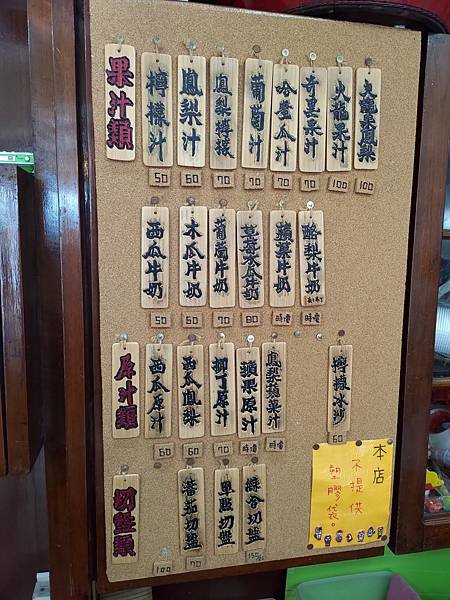 果汁類
檸檬汁 50
鳳梨汁 60
鳳梨檸檬 70
葡萄汁 70
哈蜜瓜汁 70
奇異果汁 70
火龍果汁 100
火龍果鳳梨 100
西瓜牛奶 50
木瓜牛奶 60
葡萄牛奶 70
草莓木瓜牛奶 80
蘋果牛奶 時價
酪梨牛奶 時價
原汁類
西瓜原汁 60
西瓜鳳梨 60
柳丁原汁 70
蘋果原汁 時價
鳳梨蘋果汁 時價
檸檬冰沙 60
切盤類
100
蕃茄切盤 70
單點切盤
綜合切盤 150
本店
不提供
塑膠袋。